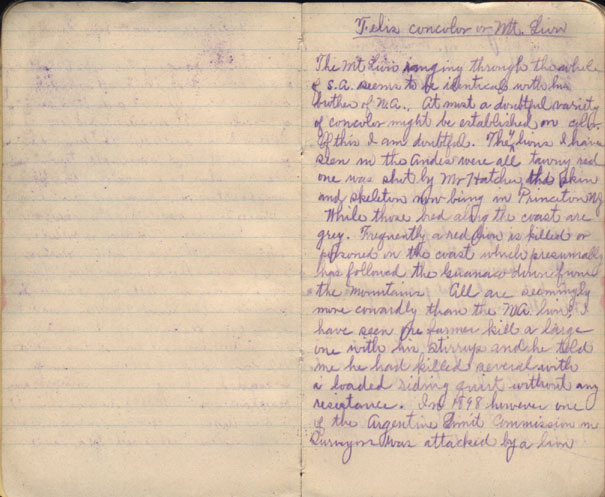 Felis concolor or Mt. Lion
The Mt Lion ranging through the whole
of S.A. seems to be identical with his
brother of N.A., At most a doubtful variety
of concolor might be established on color.
Of this I am doubtful. The lions I have
seen in the Andes were all tawny red
one was shot by Mr Hatcher, the skin
and skeleton now being in Princeton NJ
While those bred along the coast are
grey. Frequently a red lion is killed or
poisoned on the coast which presumably
has followed the Guanaco down from
the mountains. All are seemingly
more cowardly than the N.A. lion. I
have seen one farmer kill a large
one with his stirrup and he told
me he had killed several with
a loaded riding quirt without any
resistance. In 1898 however one
of the Argentine Limit Commission in
was attacked by a lion